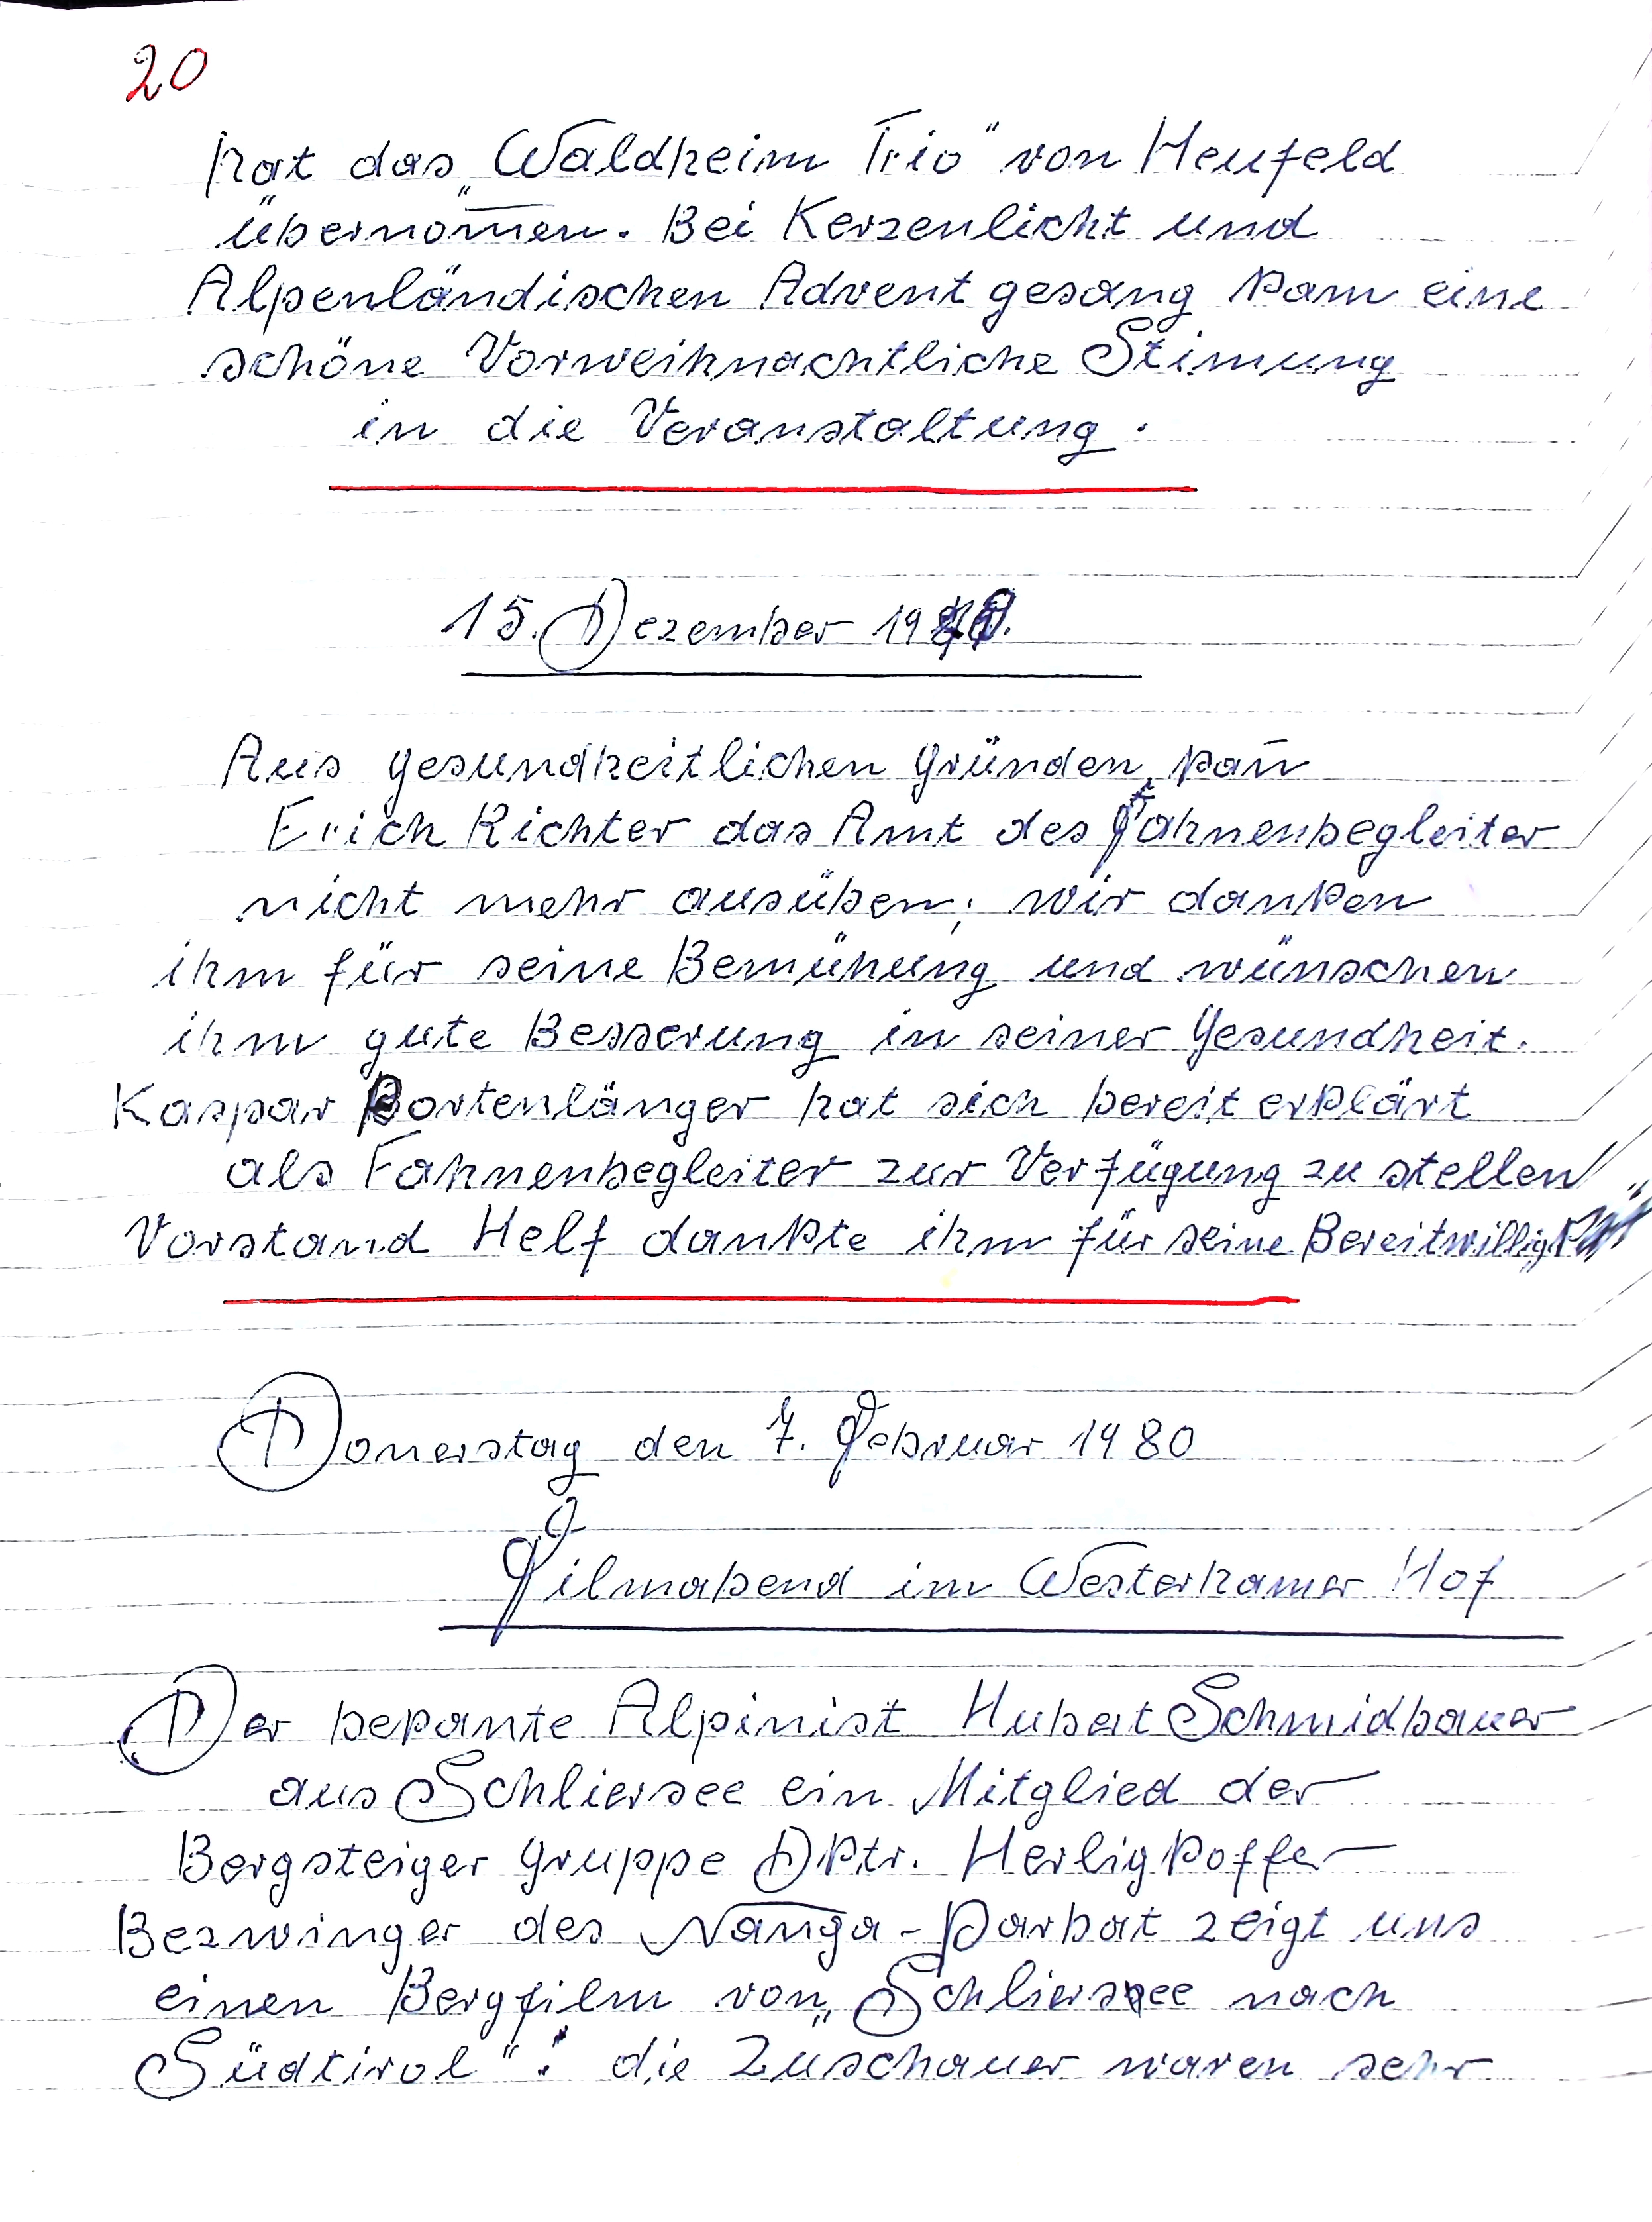 20
hat das „Waldheim Trio" von Heufeld
übernom̅en. Bei Kerzenlicht und
Alpenländischen Advent gesang kam eine
schöne Vorweihnachtliche Stimung
in die Veranstaltung.
15. Dezember 19
Aus gesundheitlichen Gründen, kan̅
Erich Richter das Amt des Fahnenbegleiter
nicht mehr ausüben; wir danken
ihm für seine Bemühung und wünschen
ihm gute Besserung in seiner Gesundheit.
Kaspar Bortenlänger hat sich bereit erklärt
als Fahnenbegleiter zur Verfügung zu stellen
Vorstand Helf dankte ihm für seine Bereitwilligkeit
Donerstag den 7. Februar 1980
Filmabend im Westerhamer Hof
Der bekante Alpinist Hubert Schmidbauer
aus Schliersee ein Mitglied der
Bergsteiger Gruppe Dktr. Herligkoffer
Bezwinger des Nanga-Parbat zeigt uns
einen Bergfilm von „Schliersee nach
Südtirol". die Zuschauer waren sehr